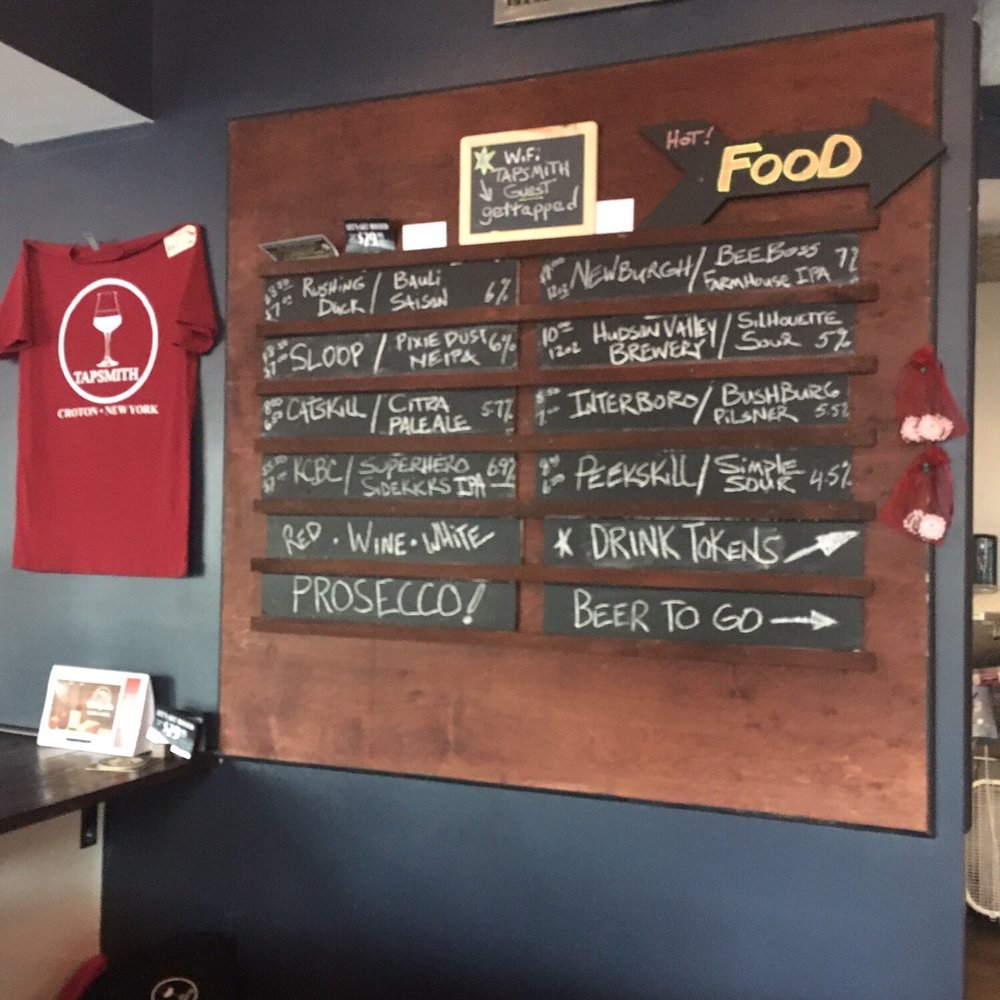 HOT!
FOOD
WiFi
TAPSMITH
GUEST
gettapped
TAPSMITH
CROTON • NEW YORK
RUSHING DUCK / BAULI SAISON 6%
SLOOP / PIXIE DUST NEIPA 6%
CATSKILL / CITRA PALE ALE 5.7%
KCBC / SUPERHERO SIDEKICKS IPA 6.9%
RED • WINE • WHITE
PROSECCO!
NEWBURGH / BEE BOSS FARMHOUSE IPA 7%
10 12oz HUDSON VALLEY BREWERY / SILHOUETTE SOUR 5%
INTERBORO / BUSHBURG PILSNER 5.5%
PEEKSKILL / SIMPLE SOUR 4.5%
* DRINK TOKENS
BEER TO GO